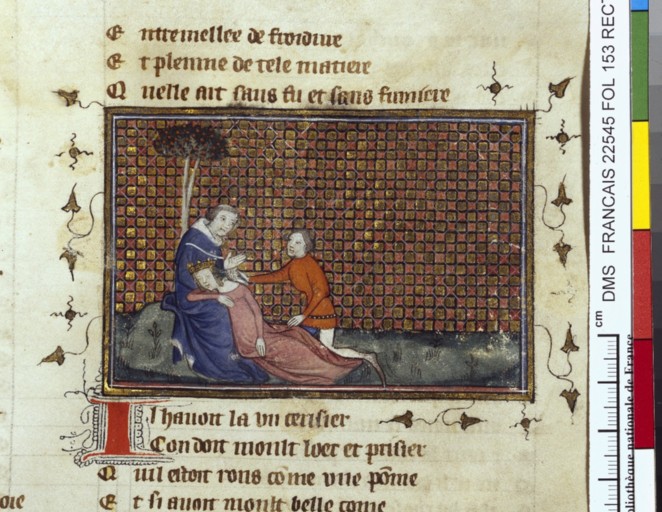 E ntremellee de froidure
E t pleinne de tele matiere
Q uelle art sans fu et sans fumiere
I l havoit la un cerisier
C on doit moult loer et prisier
Q uil estoit rons cõme une põme
E t si avoit moult belle come
oie
DMS FRANCAIS 22545 FOL 153 RECT
cm
bibliothèque nationale de France